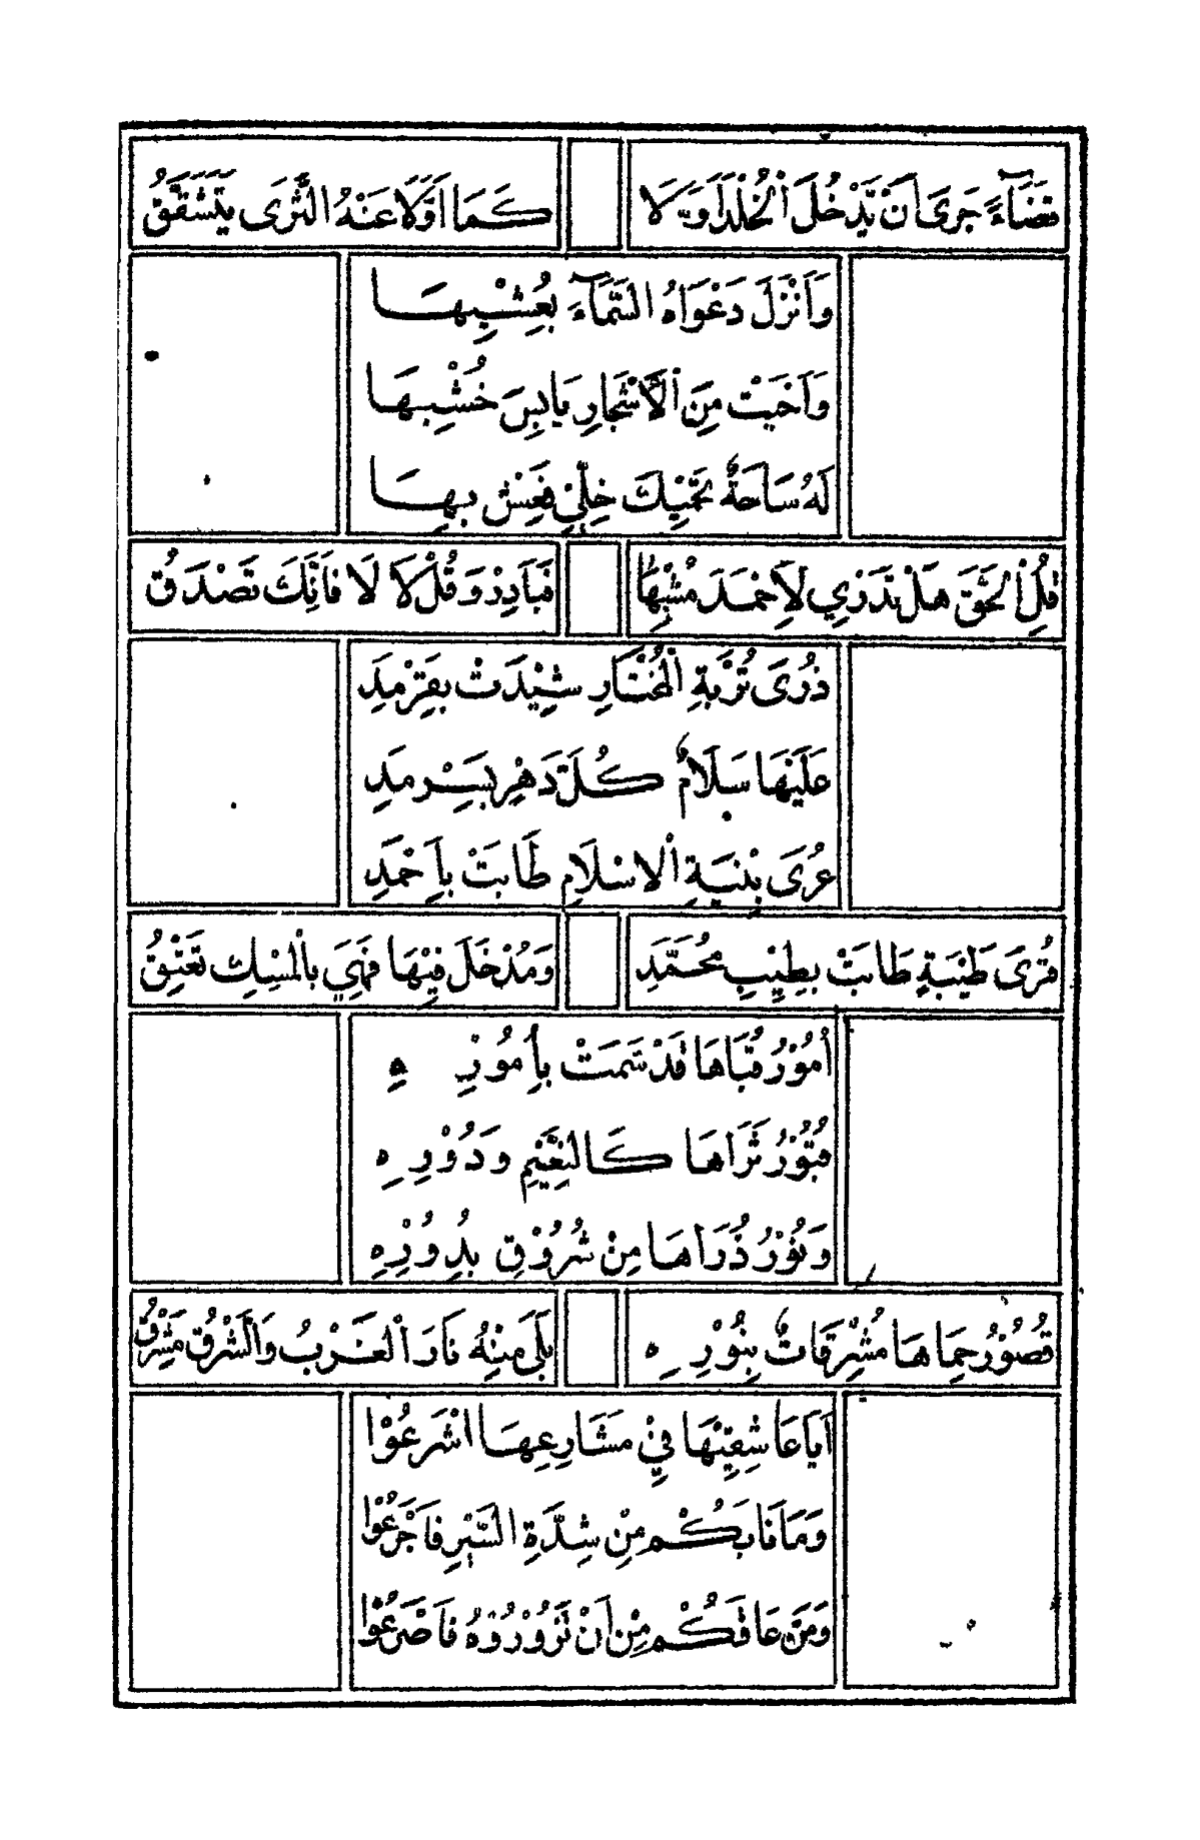 قَضَاءً جَرَى اَنْ يَّدْخُلَ الْخُلْدَ اَوَّلَا كَمَا اَوَّلًا عَنْهُ الثَّرَى يَتَشَقَّقُ
وَاَنْزَلَ دَعْوَاهُ السَّمَآءَ بِعُشْبِهَا
وَاَحْيَتْ مِنَ الْاَشْجَارِ يَابِسَ خُشْبِهَا
لَهُ سَاحَةٌ تَحْمِيْكَ خِلِّيْ فَعِشْ بِهَا
قُلِ الْحَقَّ هَلْ تَدْرِي لِاَحْمَدَ مُشْبِهًا فَبَادِرْ وَقُلْ لَا لَا فَاِنَّكَ تَصْدَقُ
ذُرَى تُرْبَةِ الْمُخْتَارِ شِيْدَتْ بِقِرْمِدِ
عَلَيْهَا سَلَامٌ كُلَّ دَهْرٍ بِسَرْمَدِ
عُرَى بِنْيَةِ الْاِسْلَامِ طَابَتْ بِاَحْمَدِ
قُرَى طَيْبَةٍ طَابَتْ بِطِيْبِ مُحَمَّدِ وَمُدْخَلَ فِيْهَا فَهِيَ بِالْمِسْكِ تَعْبَقُ
اُمُوْرُ قُبَاهَا قَدْ سَمَتْ بِاُمُوْرِهِ
قُبُوْرُ ثَرَاهَا كَالنَّعِيْمِ وَدُوْرِهِ
وَنُوْرُ ذُرَاهَا مِنْ شُرُوْقِ بُدُوْرِهِ
قُصُوْرُ حِمَاهَا مُشْرِقَاتٌ بِنُوْرِهِ بَلَى مِنْهُ نَارَ الْغَرْبُ وَالشَّرْقُ مَشْرِقُ
اَيَا عَاشِقِيْهَا فِيْ مَشَارِعِهَا اشْرَعُوْا
وَمَا نَابَكُمْ مِنْ شِدَّةِ السَّيْرِ فَاجْرَعُوْا
وَمَنْ عَاقَكُمْ مِنْ اَنْ تَزُوْرُوْهُ فَاصْرَعُوْا